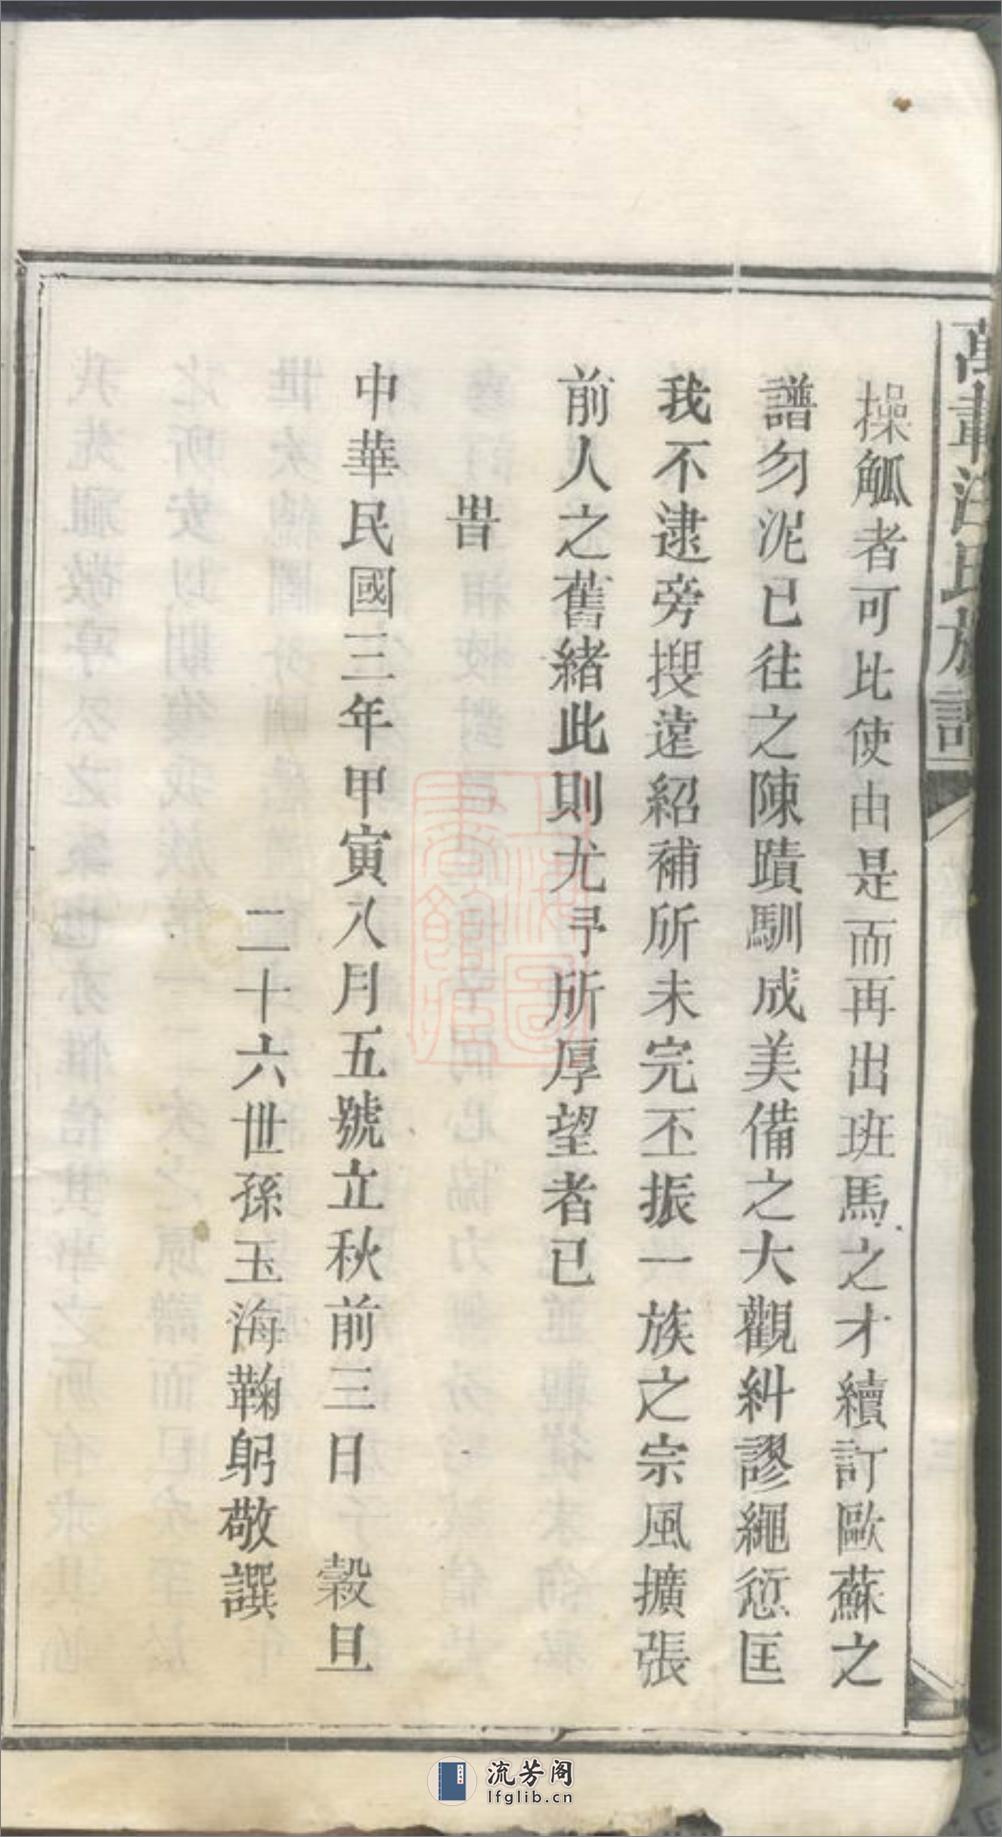 萬載汪氏族譜
操觚者可比使由是而再出班馬之才續訂歐蘇之
譜勿泥已往之陳蹟馴成美備之大觀糾謬繩愆匡
我不逮旁搜遠紹補所未完丕振一族之宗風擴張
前人之舊緒此則尤予所厚望者已
旹
中華民國三年甲寅八月五號立秋前三日 穀旦
二十六世孫玉海鞠躬敬譔
流芳阁
lfglib.cn